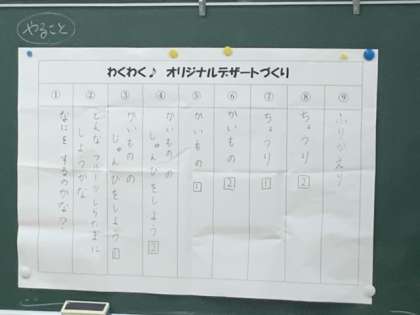 やること
わくわく♪ オリジナルデザートづくり
①
なにを するのかな?
②
どんな フルーツしらたまに
しようかな
③
かいものの
じゅんびをしよう 1
④
かいものの
じゅんびをしよう 2
⑤
かいもの 1
⑥
かいもの 2
⑦
ちょうり 1
⑧
ちょうり 2
⑨
ふりかえり